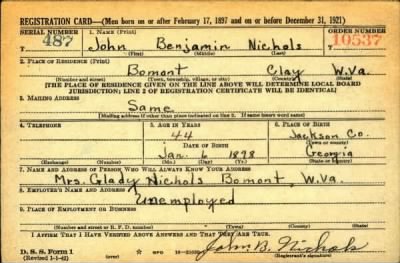 REGISTRATION CARD—(Men born on or after February 17, 1897 and on or before December 31, 1921)
SERIAL NUMBER 1. NAME (Print) ORDER NUMBER
487 John Benjamin Nichols 10537
(First) (Middle) (Last)
2. PLACE OF RESIDENCE (Print)
Bomont Clay W.Va.
(Number and street) (Town, township, village, or city) (County) (State)
[THE PLACE OF RESIDENCE GIVEN ON THE LINE ABOVE WILL DETERMINE LOCAL BOARD
JURISDICTION; LINE 2 OF REGISTRATION CERTIFICATE WILL BE IDENTICAL]
3. MAILING ADDRESS
Same
[Mailing address if other than place indicated on line 2. If same insert word same]
4. TELEPHONE 5. AGE IN YEARS 6. PLACE OF BIRTH
44 Jackson Co.
DATE OF BIRTH (Town or county)
Jan. 6 1898 Georgia
(Exchange) (Number) (Mo.) (Day) (Yr.) (State or country)
7. NAME AND ADDRESS OF PERSON WHO WILL ALWAYS KNOW YOUR ADDRESS
Mrs. Glady Nichols Bomont, W.Va.
8. EMPLOYER'S NAME AND ADDRESS
Unemployed
9. PLACE OF EMPLOYMENT OR BUSINESS
(Number and street or R. F. D. number) (Town) (County) (State)
I AFFIRM THAT I HAVE VERIFIED ABOVE ANSWERS AND THAT THEY ARE TRUE.
D. S. S. Form 1 John B. Nichols
(Revised 1-1-42) (over) GPO (Registrant's signature)